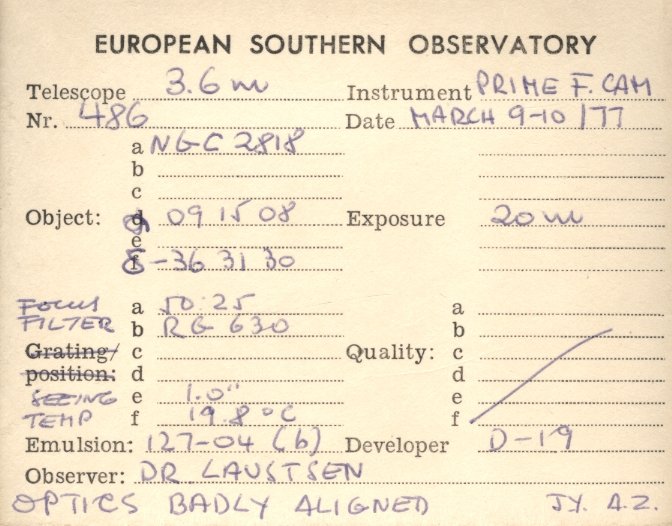 EUROPEAN SOUTHERN OBSERVATORY
Telescope 3.6 m Instrument PRIME F. CAM
Nr. 486 Date MARCH 9-10 /77
a NGC 2818
b
c
Object: d α 09 15 08 Exposure 20 m
e
f δ -36 31 30
FOCUS a 50.25 a
FILTER b RG 630 b
Grating/ c Quality: c
position: d d
SEEING e 1.0" e
TEMP f 19.8 °C f
Emulsion: 127-04 (b) Developer D-19
Observer: DR LAUSTSEN
OPTICS BADLY ALIGNED JY. A.Z.